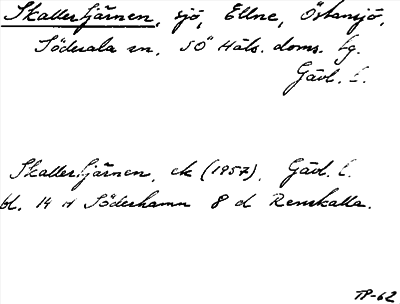 Skallertjärnen, sjö, Ellne, Östansjö,
Söderala sn, SÖ Häls. doms. tg.
Gävl. l.
Skallertjärnen, ek (1957), Gävl. l.
bl. 14 H Söderhamn 8 d Renskalla.
TP-62